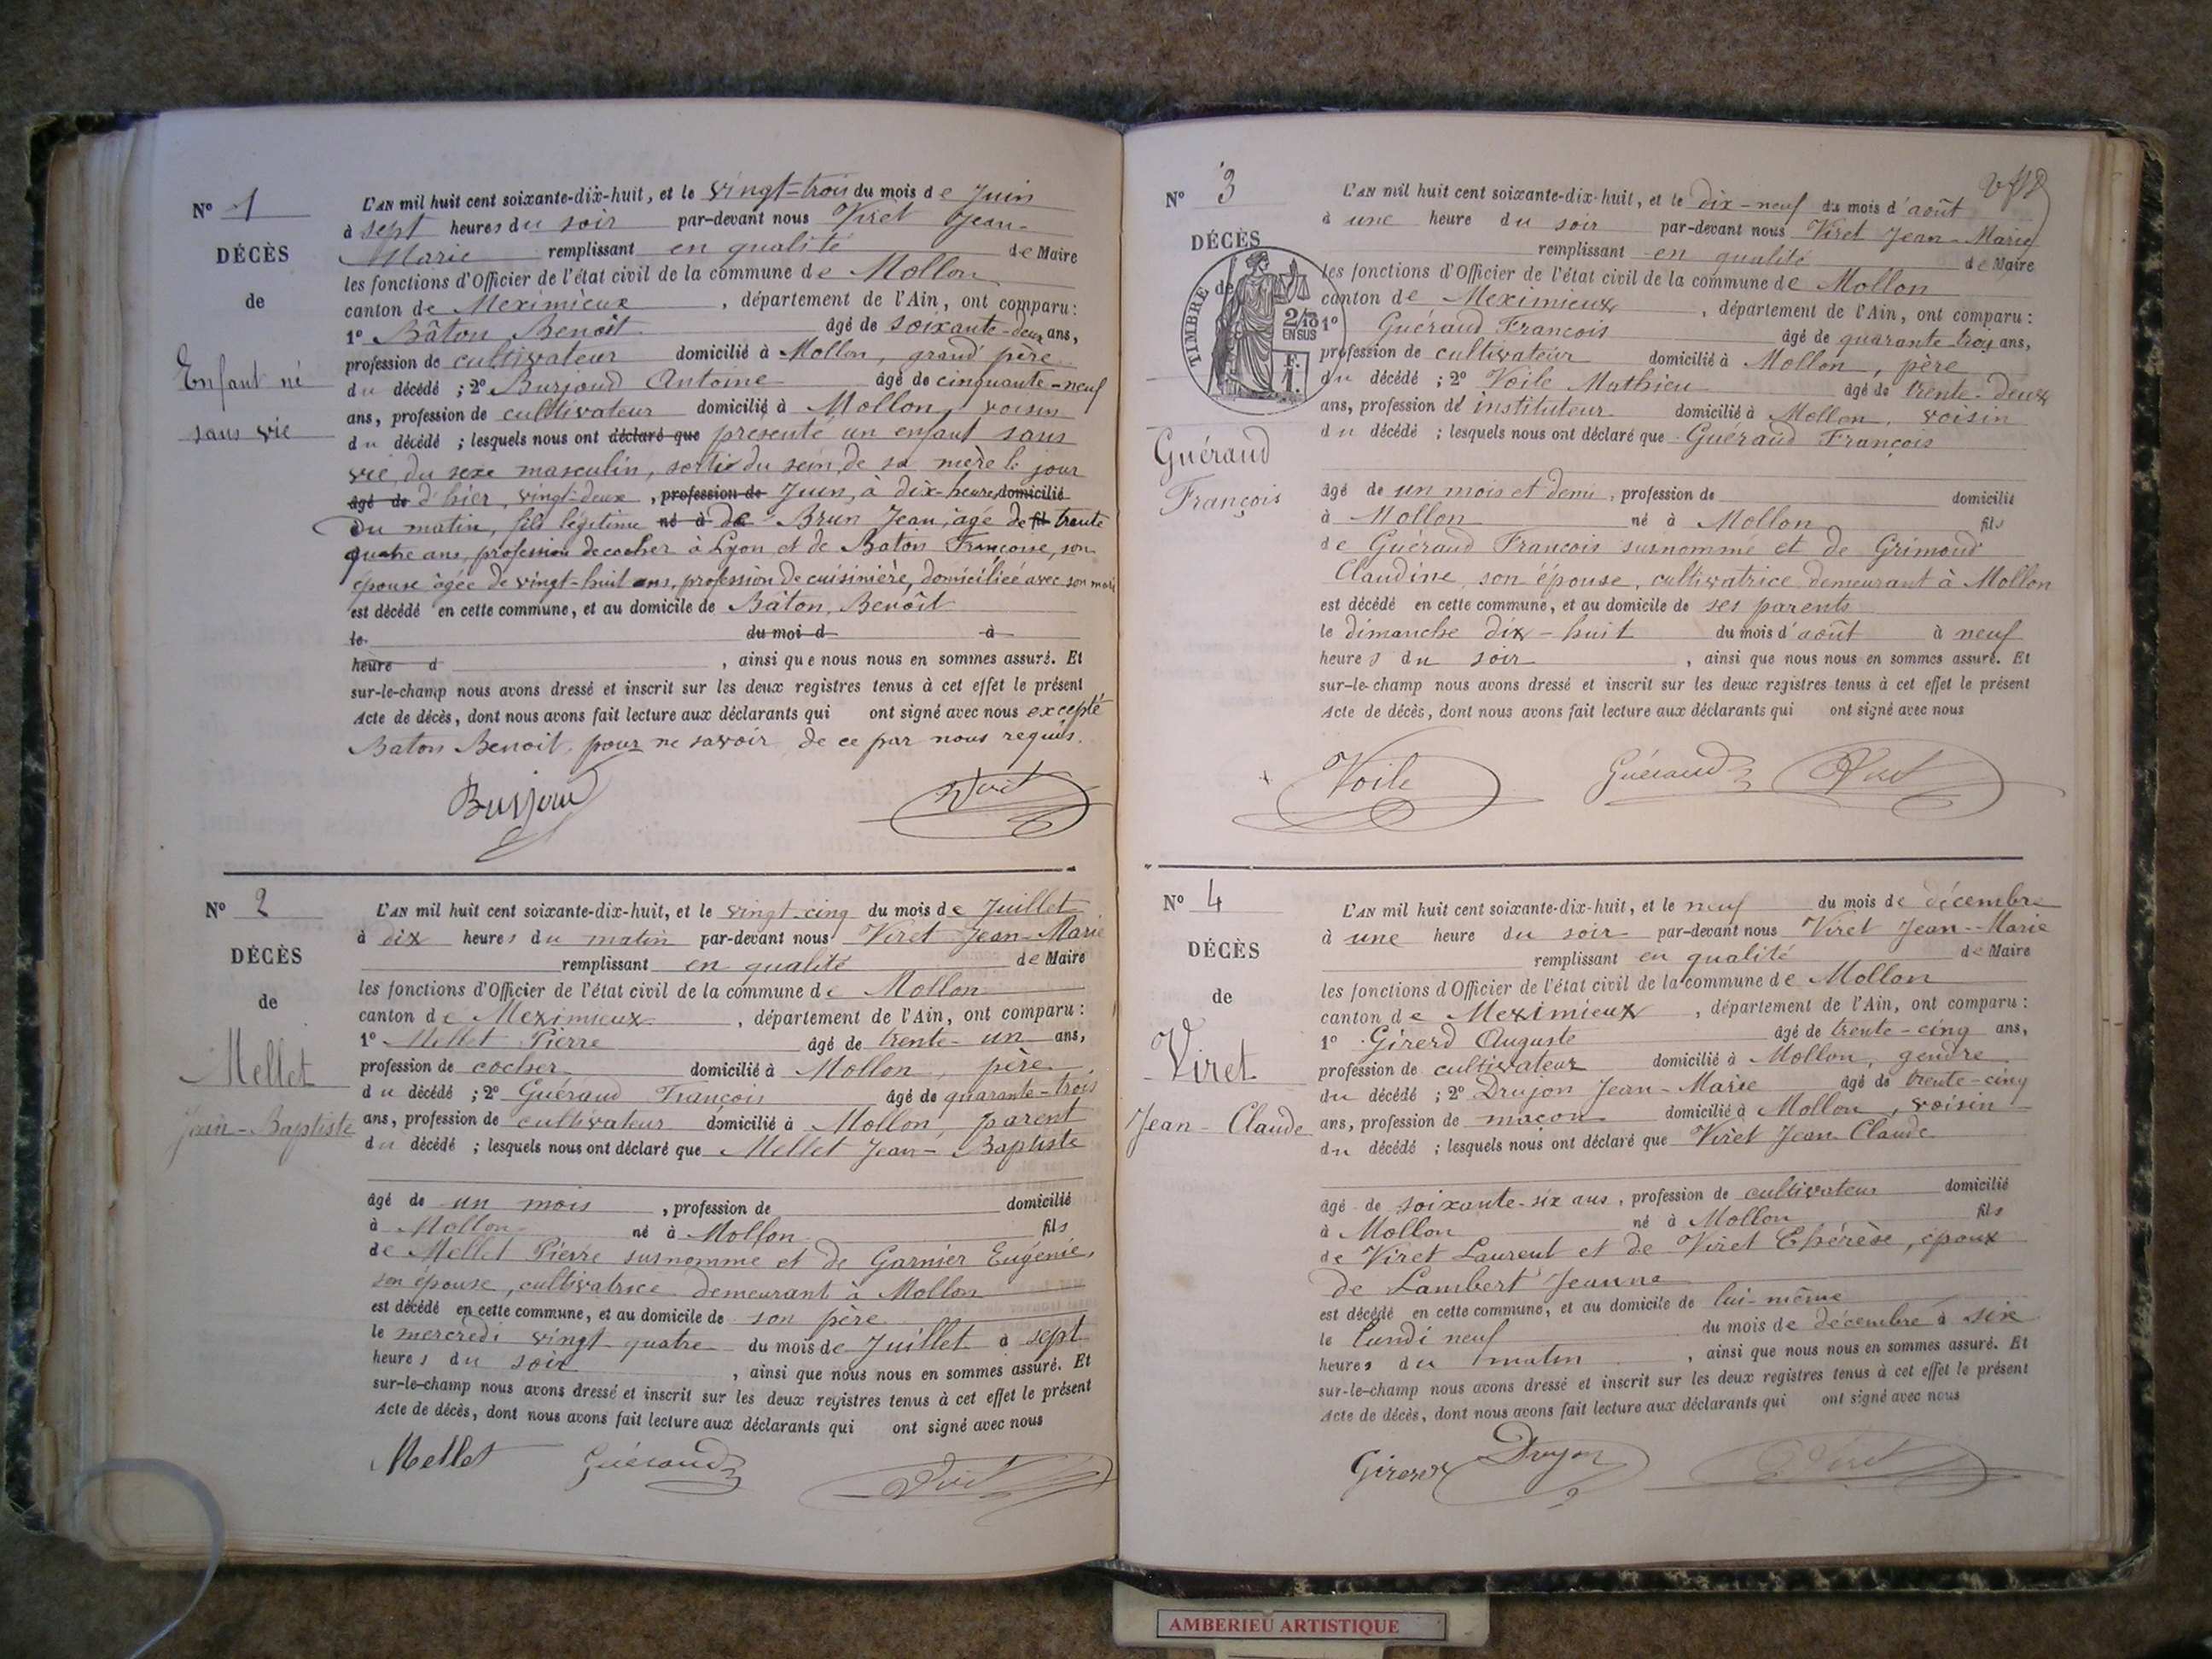 N° 1
DÉCÈS
de
Enfant né
sans vie
L'AN mil huit cent soixante-dix-huit, et le vingt-trois du mois de Juin
à sept heures du soir par-devant nous Viret Jean-
Marie remplissant en qualité de Maire
les fonctions d'Officier de l'état civil de la commune de Mollon
canton de Meximieux, département de l'Ain, ont comparu:
1° Bâton Benoît âgé de soixante-deux ans,
profession de cultivateur domicilié à Mollon, grand père
du décédé ; 2° Burjoud Antoine âgé de cinquante-neuf
ans, profession de cultivateur domicilié à Mollon, voisin
du décédé ; lesquels nous ont déclaré que présenté un enfant sans
vie, du sexe masculin, sortir du sein de sa mère le jour
âgé de d'hier, vingt-deux, profession de Juin, à dix-heures domicilié
du matin, fils légitime né à de Brun Jean, âgé de fil trente
quatre ans, profession de cocher à Lyon et de Baton Françoise, son
épouse âgée de vingt-huit ans, profession de cuisinière, domiciliée avec son mari
est décédé en cette commune, et au domicile de Bâton, Benoît
le du moi d à
heure d , ainsi que nous nous en sommes assuré. Et
sur-le-champ nous avons dressé et inscrit sur les deux registres tenus à cet effet le présent
Acte de décès, dont nous avons fait lecture aux déclarants qui ont signé avec nous excepté
Baton Benoit, pour ne savoir, de ce par nous requis.
Burjoud Viret
N° 2
DÉCÈS
de
Mellet
Jean-Baptiste
L'AN mil huit cent soixante-dix-huit, et le vingt-cinq du mois de Juillet
à dix heures du matin par-devant nous Viret Jean-Marie
remplissant en qualité de Maire
les fonctions d'Officier de l'état civil de la commune de Mollon
canton de Meximieux, département de l'Ain, ont comparu :
1° Mellet Pierre âgé de trente-un ans,
profession de cocher domicilié à Mollon, père
du décédé ; 2° Guéraud François âgé de quarante-trois
ans, profession de cultivateur domicilié à Mollon, parent
du décédé ; lesquels nous ont déclaré que Mellet Jean-Baptiste
âgé de un mois, profession de domicilié
à Mollon né à Mollon fils
de Mellet Pierre surnommé et de Garnier Eugénie,
son épouse, cultivatrice demeurant à Mollon
est décédé en cette commune, et au domicile de son père
le mercredi vingt-quatre du mois de Juillet à sept
heures du soir, ainsi que nous nous en sommes assuré. Et
sur-le-champ nous avons dressé et inscrit sur les deux registres tenus à cet effet le présent
Acte de décès, dont nous avons fait lecture aux déclarants qui ont signé avec nous
Mellet Guéraud Viret
N° 3
DÉCÈS
de
TIMBRE
2/10
EN SUS
F.
1.
Guéraud
François
L'AN mil huit cent soixante-dix-huit, et le dix-neuf du mois d'août
à une heure du soir par-devant nous Viret Jean-Marie
remplissant en qualité de Maire
les fonctions d'Officier de l'état civil de la commune de Mollon
canton de Meximieux, département de l'Ain, ont comparu :
1° Guéraud François âgé de quarante trois ans,
profession de cultivateur domicilié à Mollon, père
du décédé ; 2° Voile Mathieu âgé de trente-deux
ans, profession de instituteur domicilié à Mollon, voisin
du décédé ; lesquels nous ont déclaré que Guéraud François
âgé de un mois et demi, profession de domicilié
à Mollon né à Mollon fils
de Guéraud François surnommé et de Grimoud
Claudine, son épouse, cultivatrice demeurant à Mollon
est décédé en cette commune, et au domicile de ses parents
le dimanche dix-huit du mois d'août à neuf
heures du soir, ainsi que nous nous en sommes assuré. Et
sur-le-champ nous avons dressé et inscrit sur les deux registres tenus à cet effet le présent
Acte de décès, dont nous avons fait lecture aux déclarants qui ont signé avec nous
Voile Guéraud Viret
N° 4
DÉCÈS
de
Viret
Jean-Claude
L'AN mil huit cent soixante-dix-huit, et le neuf du mois de décembre
à une heure du soir par-devant nous Viret Jean-Marie
remplissant en qualité de Maire
les fonctions d'Officier de l'état civil de la commune de Mollon
canton de Meximieux, département de l'Ain, ont comparu :
1° Girerd Auguste âgé de trente-cinq ans,
profession de cultivateur domicilié à Mollon, gendre
du décédé ; 2° Drujon Jean-Marie âgé de trente-cinq
ans, profession de maçon domicilié à Mollon, voisin
du décédé ; lesquels nous ont déclaré que Viret Jean Claude
âgé de soixante-six ans, profession de cultivateur domicilié
à Mollon né à Mollon fils
de Viret Laurent et de Viret Thérèse, époux
de Lambert Jeanne
est décédé en cette commune, et au domicile de lui-même
le lundi neuf du mois de décembre à six
heures du matin, ainsi que nous nous en sommes assuré. Et
sur-le-champ nous avons dressé et inscrit sur les deux registres tenus à cet effet le présent
Acte de décès, dont nous avons fait lecture aux déclarants qui ont signé avec nous
Girerd Drujon Viret
AMBERIEU ARTISTIQUE